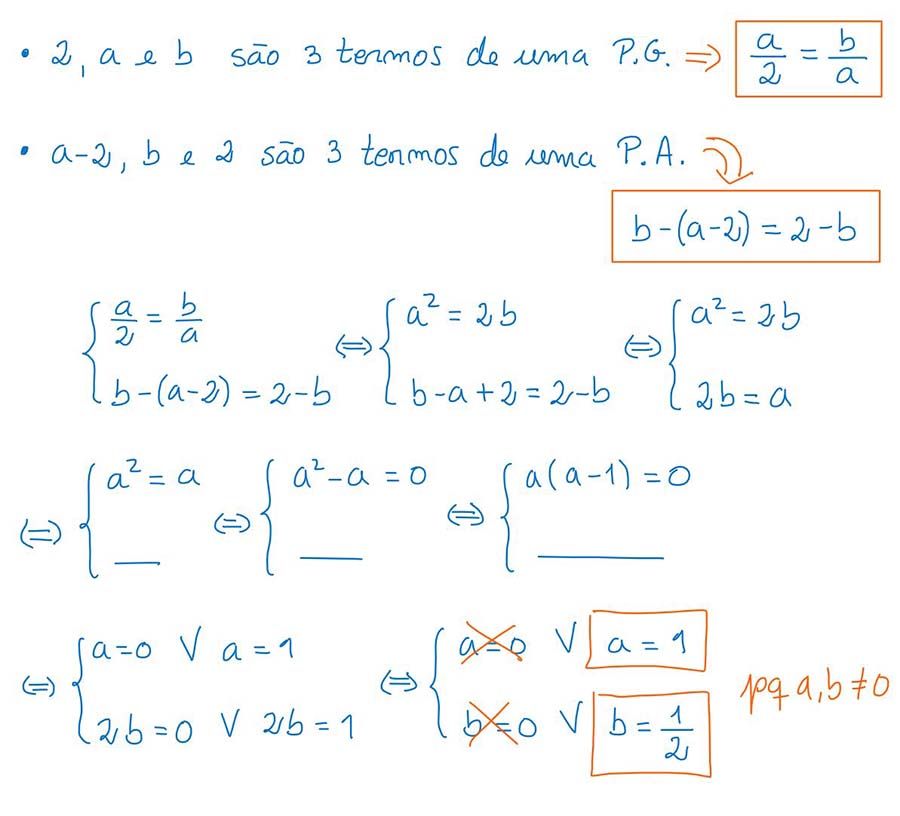 • 2, a e b são 3 termos de uma P.G. ⇒ a/2 = b/a
• a-2, b e 2 são 3 termos de uma P.A.
b-(a-2) = 2-b
{ a/2 = b/a ⇔ { a² = 2b ⇔ { a² = 2b
b-(a-2) = 2-b b-a+2 = 2-b 2b = a
⇔ { a² = a ⇔ { a²-a = 0 ⇔ { a(a-1) = 0
__ __ __
⇔ { a=0 V a=1 ⇔ { a=0 V a=1
pq a,b ≠ 0
2b=0 V 2b=1 b=0 V b=1/2